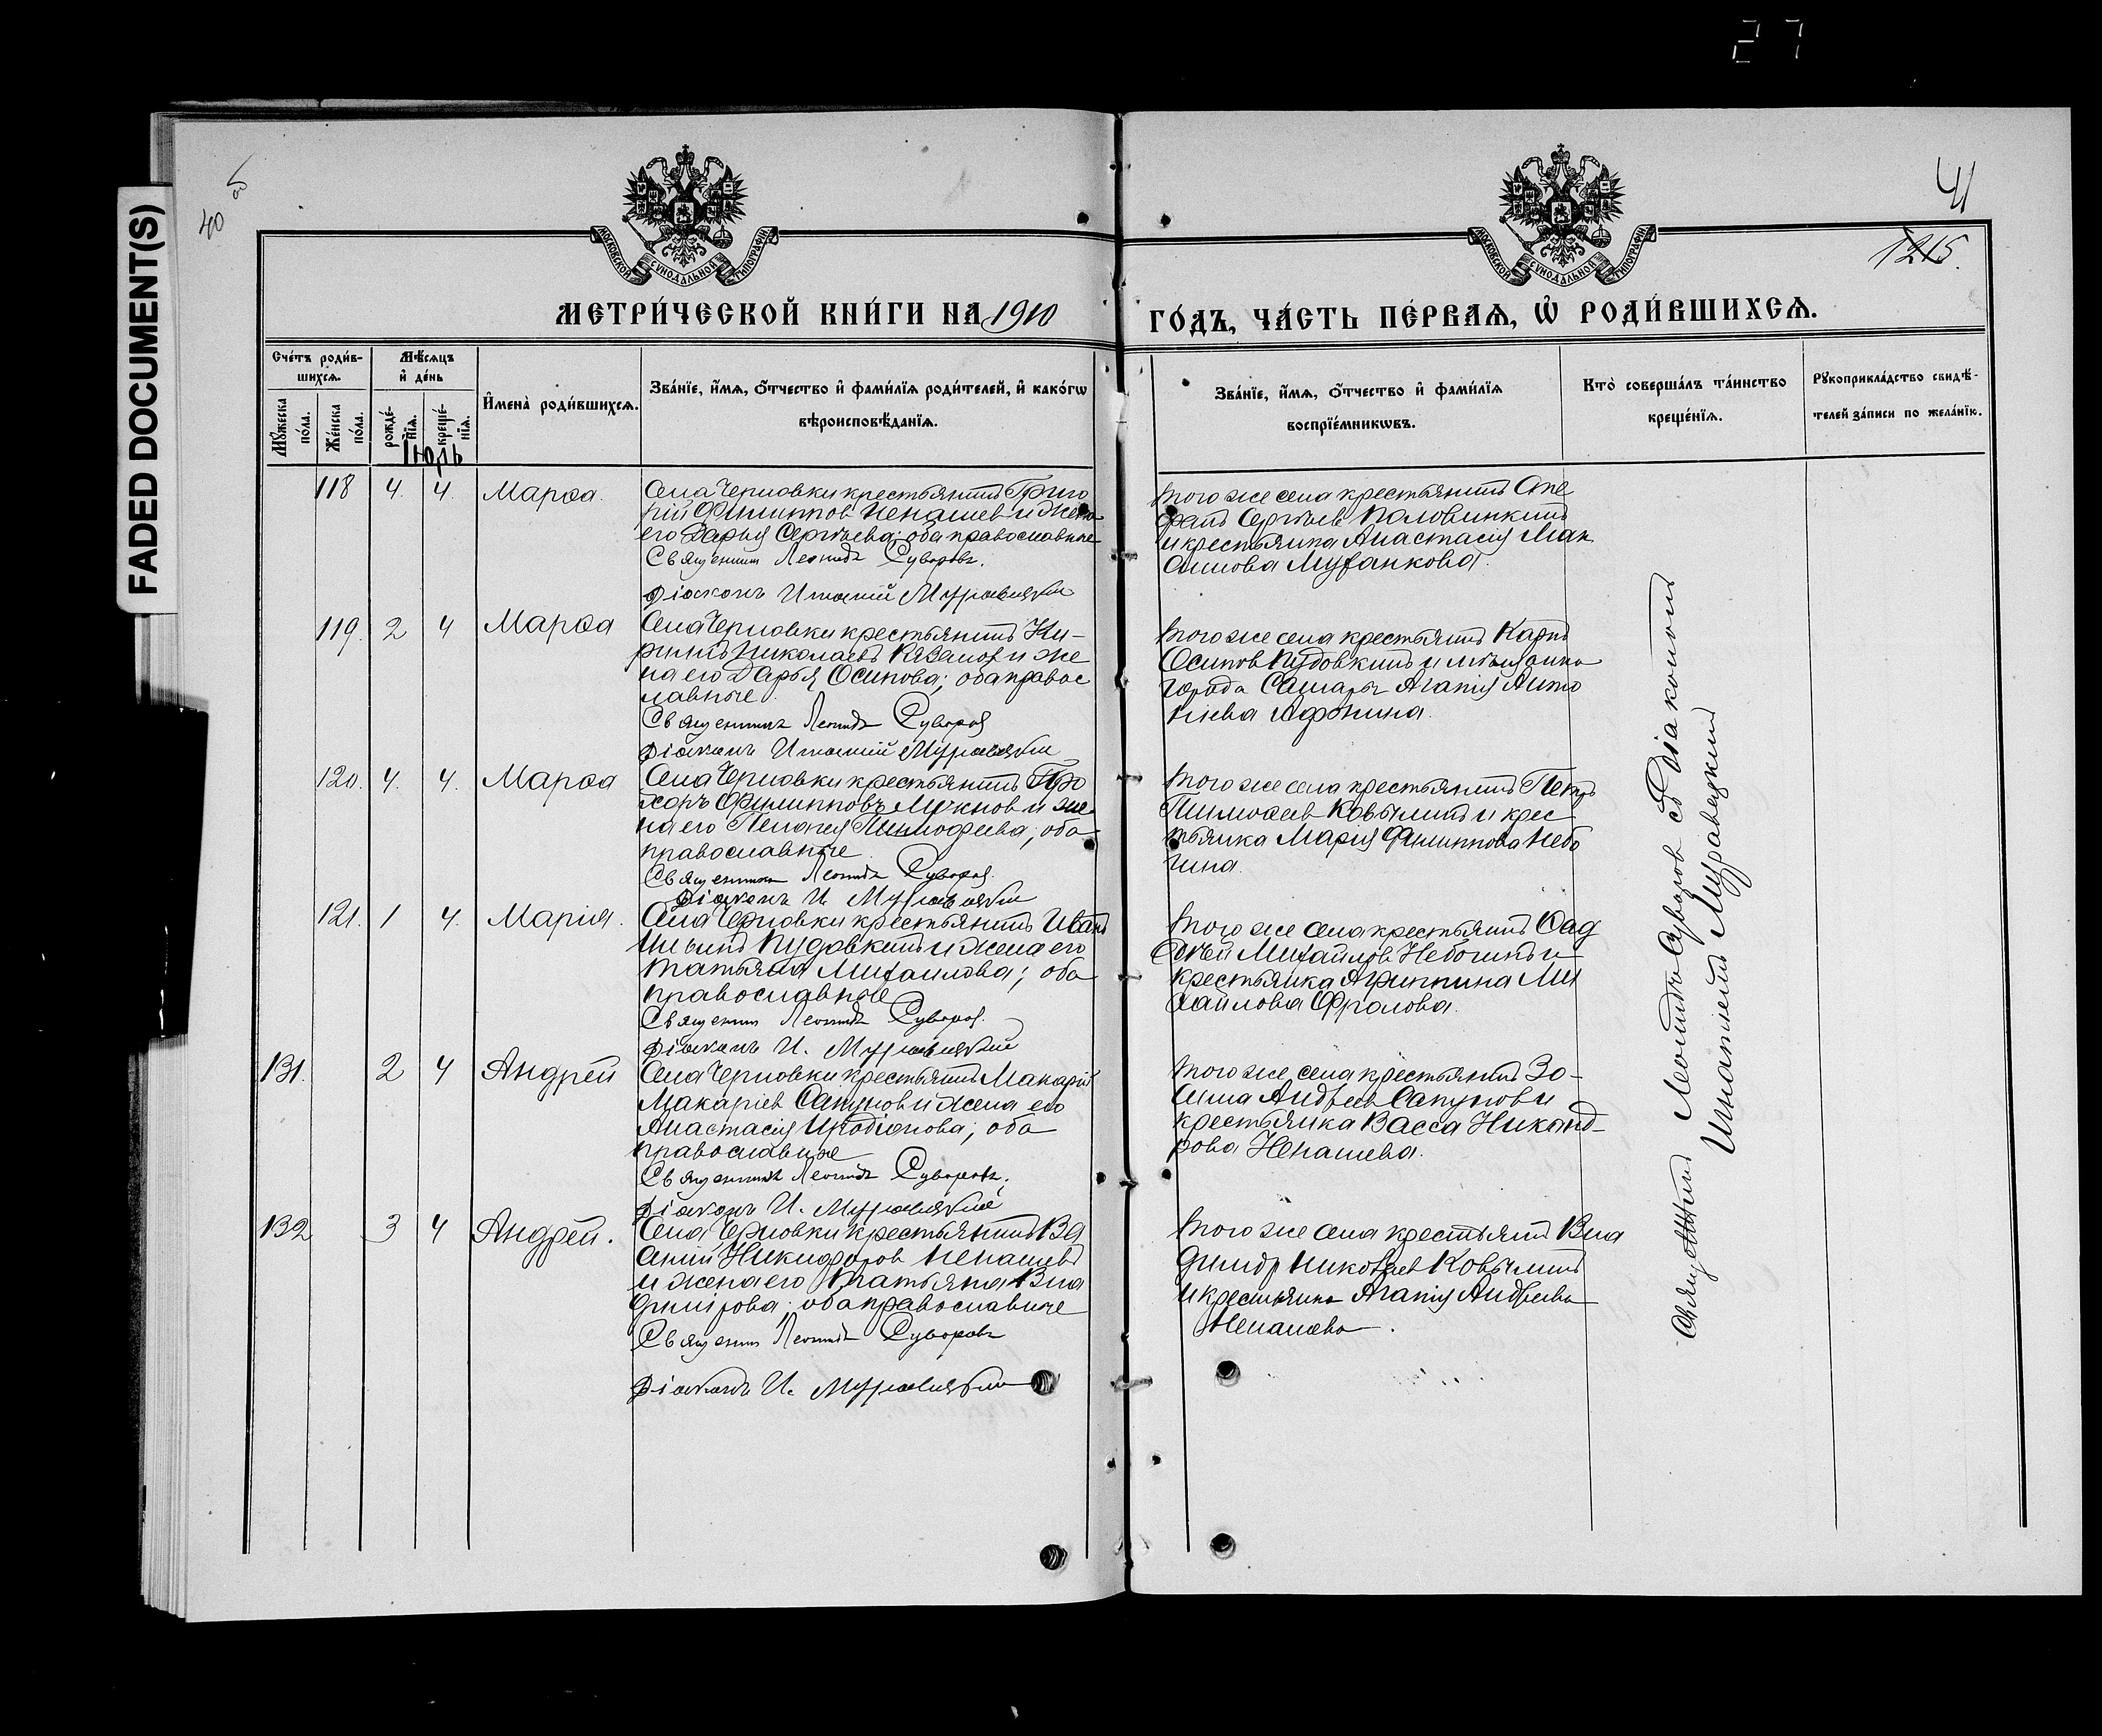 27
FADED DOCUMENT(S)
40 об
41
1215.
МОСКОВСКОЙ СѴНОДАЛЬНОЙ ТИПОГРАФІИ
МОСКОВСКОЙ СѴНОДАЛЬНОЙ ТИПОГРАФІИ
МЕТРИ́ЧЕСКОЙ КНИ́ГИ НА 1910
ГО́ДЪ, ЧА́СТЬ ПЕ́РВАѦ, Ѡ҆ РОДИ́ВШИХСѦ.
Сче́тъ роди́в-
шихсѧ.
Мꙋ́жеска по́ла.
Же́нска по́ла.
Мѣ́сѧцъ
и҆ де́нь
рожде́-нїѧ.
креще́-нїѧ.
Имена̀ роди́вшихсѧ.
Зва́нїе, и҆́мѧ, ѻ҆́тчество и҆ фами́лїѧ роди́телей, и҆ како́гѡ
вѣроисповѣ́данїѧ.
Зва́нїе, и҆́мѧ, ѻ҆́тчество и҆ фами́лїѧ
воспрїе́мникѡвъ.
Кто̀ соверша́лъ та́инство
креще́нїѧ.
Рꙋкоприкла́дство свидѣ́-
телей за́писи по жела́нїю.
Іюль
118 4. 4. Марѳа.
Села Черновки крестьянинъ Григо
рій Филипповъ Ненашевъ и жена
его Дарья Сергѣева; оба православные
Священникъ Леонидъ Суворовъ.
Діаконъ Игнатій Муравецкій
того же села крестьянинъ Сте
фанъ Сергѣевъ Половинкинъ
и крестьянка Анастасія Мак
симова Муханкова.
119. 2 4 Марѳа
Села Черновки крестьянинъ Ки-
риллъ Николаевъ и же
на его Дарья Осипова; оба правос
лавные.
Священникъ Леонидъ Суворовъ
Діаконъ Игнатій Муравецкій
того же села крестьянинъ Карпъ
Осиповъ Пудовкинъ и мѣщанка
города Самары Агапія Анто
ніева Афонина.
120. 4. 4. Марѳа
Села Черновки крестьянинъ Про
хоръ Филипповъ и же
на его Пелагея Тимофеева; оба
православные.
Священникъ Леонидъ Суворовъ.
Діаконъ И. Муравецкій
того же села крестьянинъ Петръ
Тимоѳеевъ Ковылинъ и крес
тьянка Марія Филиппова Небо
гина.
121. 1 4. Марія.
Села Черновки крестьянинъ Иванъ
Ильинъ Пудовкинъ и жена его
Татьяна Михаилова; оба
православные
Священникъ Леонидъ Суворовъ.
Діаконъ И. Муравецкій
того же села крестьянинъ Ѳад
дей Михайловъ Небогинъ и
крестьянка Агриппина Ми
хайлова Фролова.
131. 2 4 Андрей
Села Черновки крестьянинъ Макарій
Макаріевъ Сапуновъ и жена его
Анастасія Иродіонова; оба
православные
Священникъ Леонидъ Суворовъ.
Діаконъ И. Муравецкій
того же села крестьянинъ Зо-
сима Андреевъ Сапуновъ и
крестьянка Васса Никанд-
рова Ненашева.
132 3 4 Андрей.
Села Черновки крестьянинъ Ва
силій Никифоровъ Ненашевъ
и жена его Татьяна Вла
димірова; оба православные
Священникъ Леонидъ Суворовъ
Діаконъ И. Муравецкій
того же села крестьянинъ Вла
диміръ Николаевъ Ковылинъ
и крестьянка Агапія Андреева
Ненашева.
Священникъ Леонидъ Суворовъ съ Діакономъ
Игнатіемъ Муравецкимъ